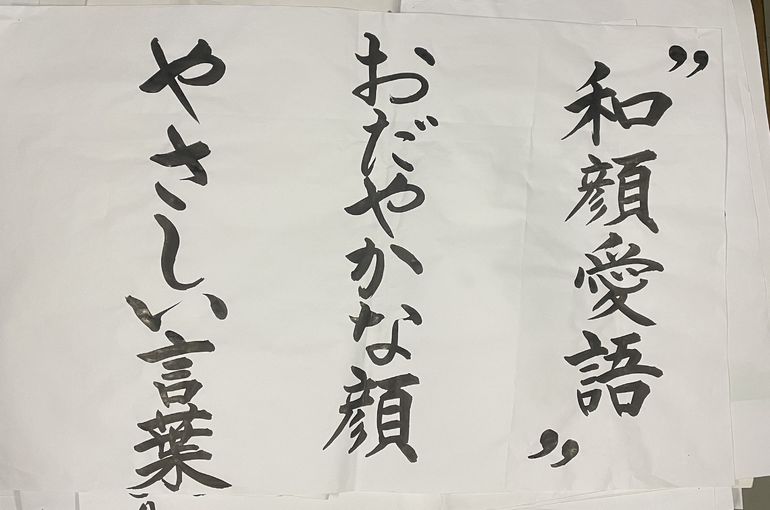 ”和顔愛語”
おだやかな顔
やさしい言葉